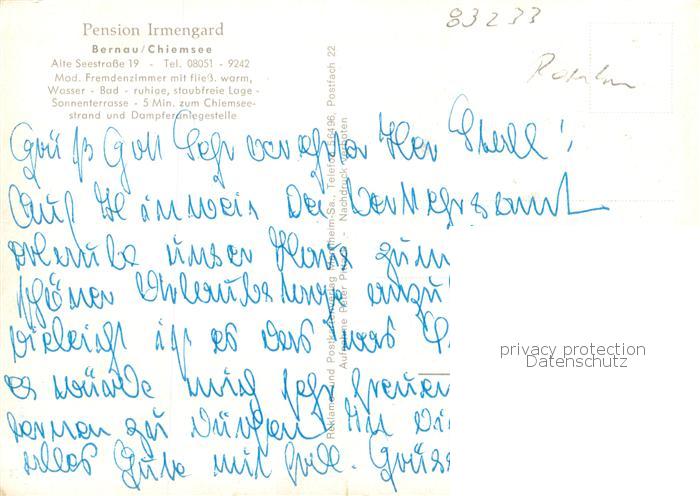 Pension Irmengard
Bernau/Chiemsee
Alte Seestraße 19 - Tel. 08051 - 9242
Mod. Fremdenzimmer mit fließ. warm,
Wasser - Bad - ruhige, staubfreie Lage -
Sonnenterrasse - 5 Min. zum Chiemsee-
strand und Dampferanlegestelle
83233
Grüß Gott Sehr verehrter Herr
Auf Hinweis Des Verkehrsamt
erlaube unser Haus zum
schönen Urlaubs anzu
Vieleicht ist es das was
es würde mich sehr freuen
lernen zu Dürfen
alles Gute mit frdl. Grüss
Reklame und Postkartenverlag Mannheim-Sa., Telefon 56496, Postfach 22
Aufnahme Peter - Nachdruck verboten
privacy protection
Datenschutz